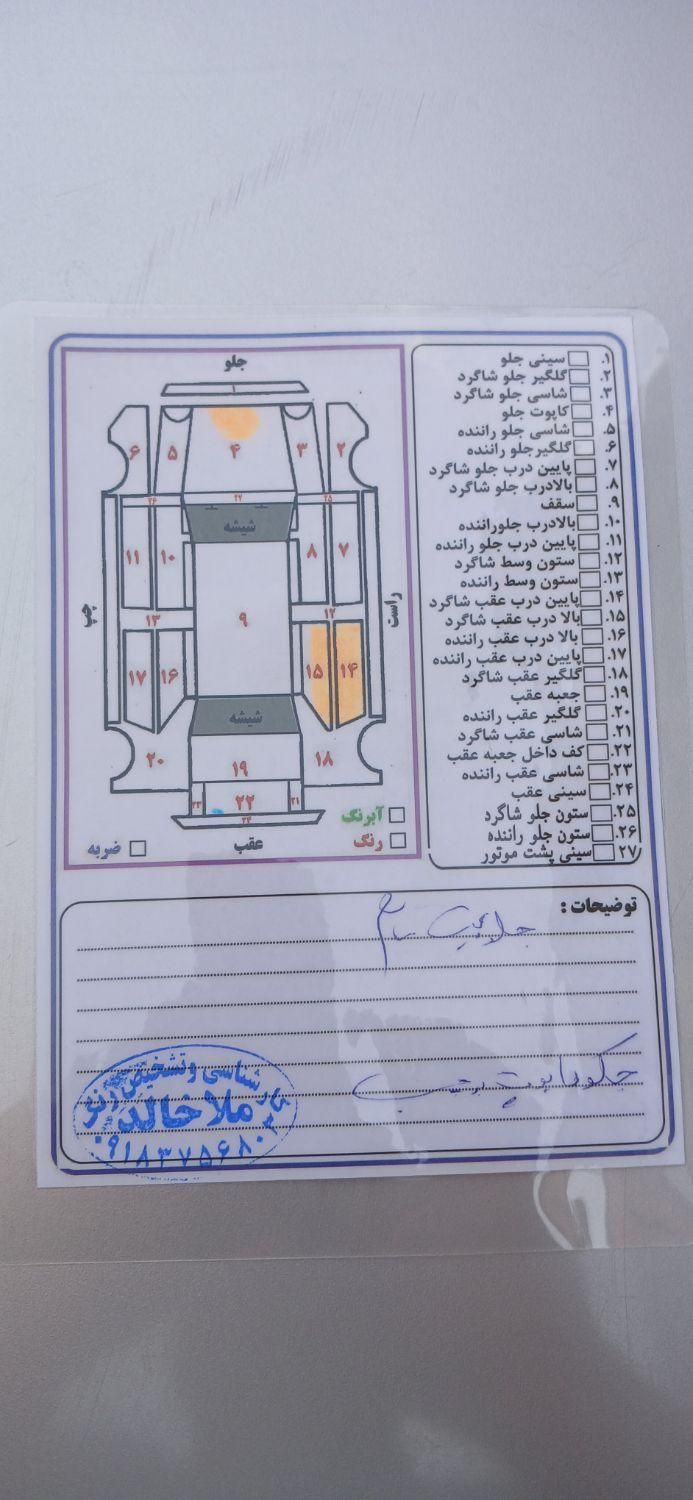 ۱. سینی جلو
۲. گلگیر جلو شاگرد
۳. شاسی جلو شاگرد
۴. کاپوت جلو
۵. شاسی جلو راننده
۶. گلگیرجلو راننده
۷. پایین درب جلو شاگرد
۸. بالادرب جلو شاگرد
۹. سقف
۱۰. بالادرب جلوراننده
۱۱. پایین درب جلو راننده
۱۲. ستون وسط شاگرد
۱۳. ستون وسط راننده
۱۴. پایین درب عقب شاگرد
۱۵. بالا درب عقب شاگرد
۱۶. بالا درب عقب راننده
۱۷. پایین درب عقب راننده
۱۸. گلگیر عقب شاگرد
۱۹. جعبه عقب
۲۰. گلگیر عقب راننده
۲۱. شاسی عقب شاگرد
۲۲. کف داخل جعبه عقب
۲۳. شاسی عقب راننده
۲۴. سینی عقب
۲۵. ستون جلو شاگرد
۲۶. ستون جلو راننده
۲۷. سینی پشت موتور
جلو
۱
۲ ۳ ۴ ۵ ۶
۲۵ ۲۷ ۲۶
شیشه
۷ ۸ ۱۰ ۱۱
راست ۹ چپ
۱۲ ۱۳
۱۴ ۱۵ ۱۶ ۱۷
شیشه
۱۸ ۱۹ ۲۰
۲۱ ۲۲ ۲۳
۲۴
عقب
آبرنگ
رنگ
ضربه
توضیحات :
کارشناسی و تشخیص رنگ
ملا خالد
۰۹۱۸۳۷۵۶۸۰۳